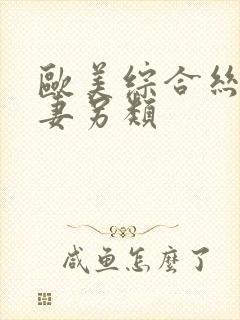 歐美綜合絲
妻另類
咸鱼怎麼了